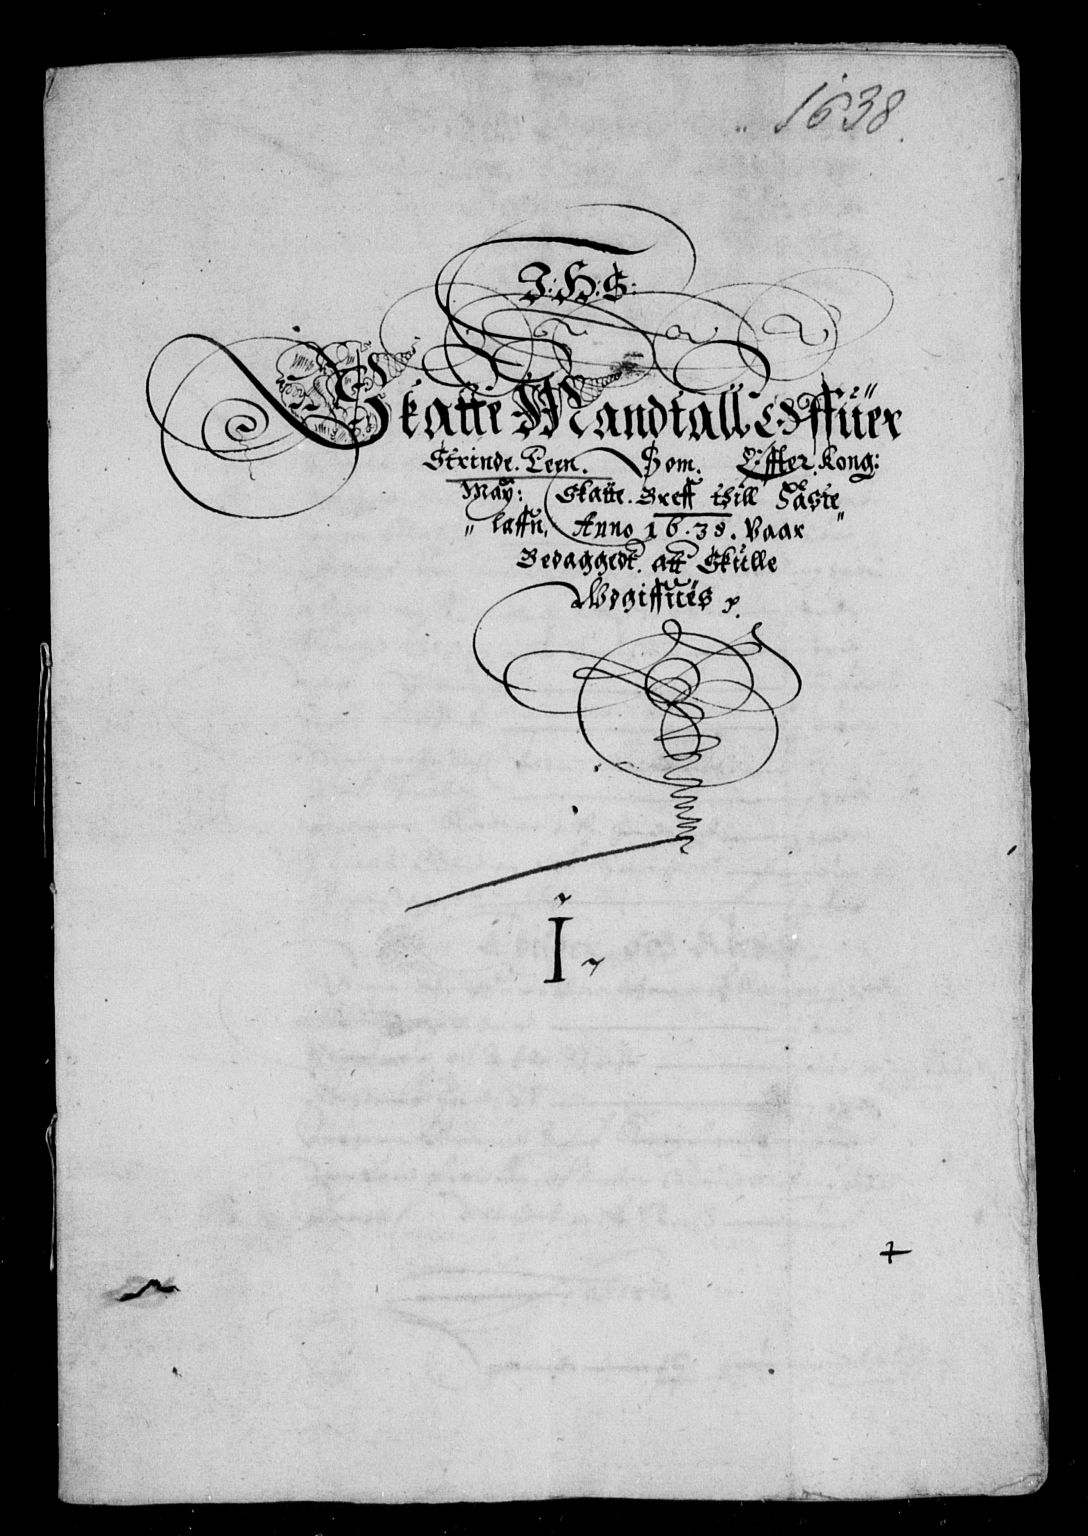 1638.
J: H: S:
Skatte Mandtall Offuer
Strinde. Leen. Som. Effter. Kong:
May: Skatte. Breff thill Faste
laffn, Anno 1638. Vaar
Bedaggedt. att Skulle
Wdgiffues
I